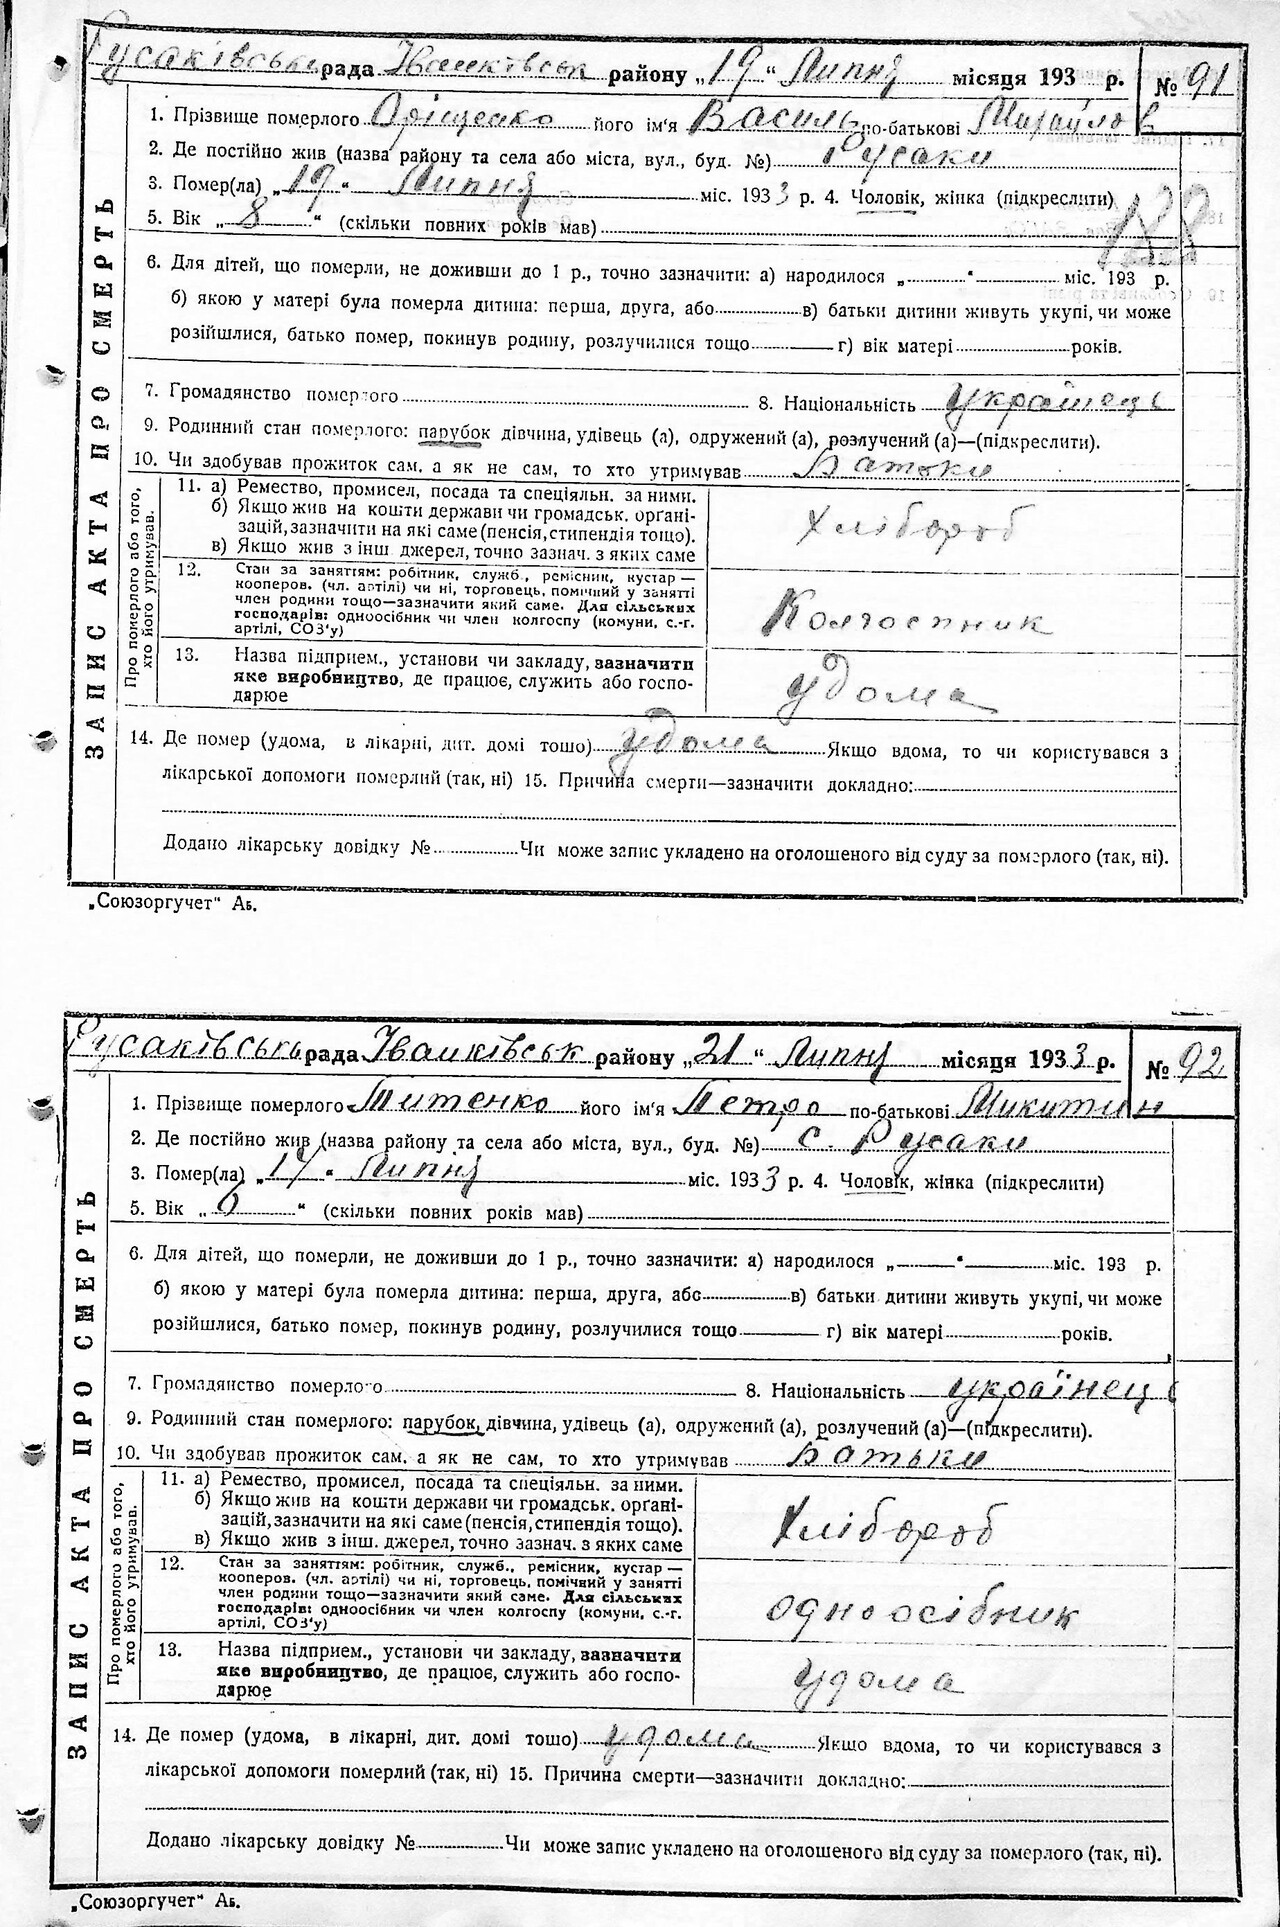 Русаківська рада Іванківськ району „19“ Липня місяця 193 р. № 91
ЗАПИС АКТА ПРО СМЕРТЬ
1. Прізвище померлого Оріщенко його ім'я Василь по-батькові Михайлов
2. Де постійно жив (назва району та села або міста, вул., буд. №) Русаки
3. Помер(ла) „19“ Липня міс. 1933 р. 4. Чоловік, жінка (підкреслити)
5. Вік „8“ (скільки повних років мав)
188
6. Для дітей, що померли, не доживши до 1 р., точно зазначити: а) народилося „ “ міс. 193 р.
б) якою у матері була померла дитина: перша, друга, або в) батьки дитини живуть укупі, чи може
розійшлися, батько помер, покинув родину, розлучилися тощо г) вік матері років.
7. Громадянство померлого 8. Національність українець
9. Родинний стан померлого: парубок дівчина, удівець (а), одружений (а), розлучений (а)—(підкреслити).
10. Чи здобував прожиток сам, а як не сам, то хто утримував Батьки
Про померлого або того, хто його утримував.
11. а) Ремество, промисел, посада та спеціяльн. за ними.
б) Якщо жив на кошти держави чи громадськ. орґані-
зацій, зазначити на які саме (пенсія, стипендія тощо).
в) Якщо жив з інш. джерел, точно зазнач. з яких саме
Хлібороб
12. Стан за заняттям: робітник, служб., ремісник, кустар —
кооперов. (чл. артілі) чи ні, торговець, помічний у занятті
член родини тощо—зазначити який саме. Для сільських
господарів: одноосібник чи член колгоспу (комуни, с.-г.
артілі, СОЗ'у)
Колгоспник
13. Назва підприєм., установи чи закладу, зазначити
яке виробництво, де працює, служить або госпо-
дарює
удома
14. Де помер (удома, в лікарні, дит. домі тощо) удома Якщо вдома, то чи користувався з
лікарської допомоги померлий (так, ні) 15. Причина смерти—зазначити докладно:
Додано лікарську довідку № Чи може запис укладено на оголошеного від суду за померлого (так, ні).
„Союзоргучет“ Аб.
Русаківська рада Іванківськ району „21“ Липня місяця 1933 р. № 92
ЗАПИС АКТА ПРО СМЕРТЬ
1. Прізвище померлого Титенко його ім'я Петро по-батькові Микитин
2. Де постійно жив (назва району та села або міста, вул., буд. №) с. Русаки
3. Помер(ла) „19“ Липня міс. 1933 р. 4. Чоловік, жінка (підкреслити)
5. Вік „6“ (скільки повних років мав)
6. Для дітей, що померли, не доживши до 1 р., точно зазначити: а) народилося „ “ міс. 193 р.
б) якою у матері була померла дитина: перша, друга, або в) батьки дитини живуть укупі, чи може
розійшлися, батько помер, покинув родину, розлучилися тощо г) вік матері років.
7. Громадянство померлого 8. Національність українець
9. Родинний стан померлого: парубок, дівчина, удівець (а), одружений (а), розлучений (а)—(підкреслити).
10. Чи здобував прожиток сам, а як не сам, то хто утримував Батьки
Про померлого або того, хто його утримував.
11. а) Ремество, промисел, посада та спеціяльн. за ними.
б) Якщо жив на кошти держави чи громадськ. орґані-
зацій, зазначити на які саме (пенсія, стипендія тощо).
в) Якщо жив з інш. джерел, точно зазнач. з яких саме
Хлібороб
12. Стан за заняттям: робітник, служб., ремісник, кустар —
кооперов. (чл. артілі) чи ні, торговець, помічний у занятті
член родини тощо—зазначити який саме. Для сільських
господарів: одноосібник чи член колгоспу (комуни, с.-г.
артілі, СОЗ'у)
одноосібник
13. Назва підприєм., установи чи закладу, зазначити
яке виробництво, де працює, служить або госпо-
дарює
удома
14. Де помер (удома, в лікарні, дит. домі тошо) удома Якщо вдома, то чи користувався з
лікарської допомоги померлий (так, ні) 15. Причина смерти—зазначити докладно:
Додано лікарську довідку № Чи може запис укладено на оголошеного від суду за померлого (так, ні).
„Союзоргучет“ Аб.